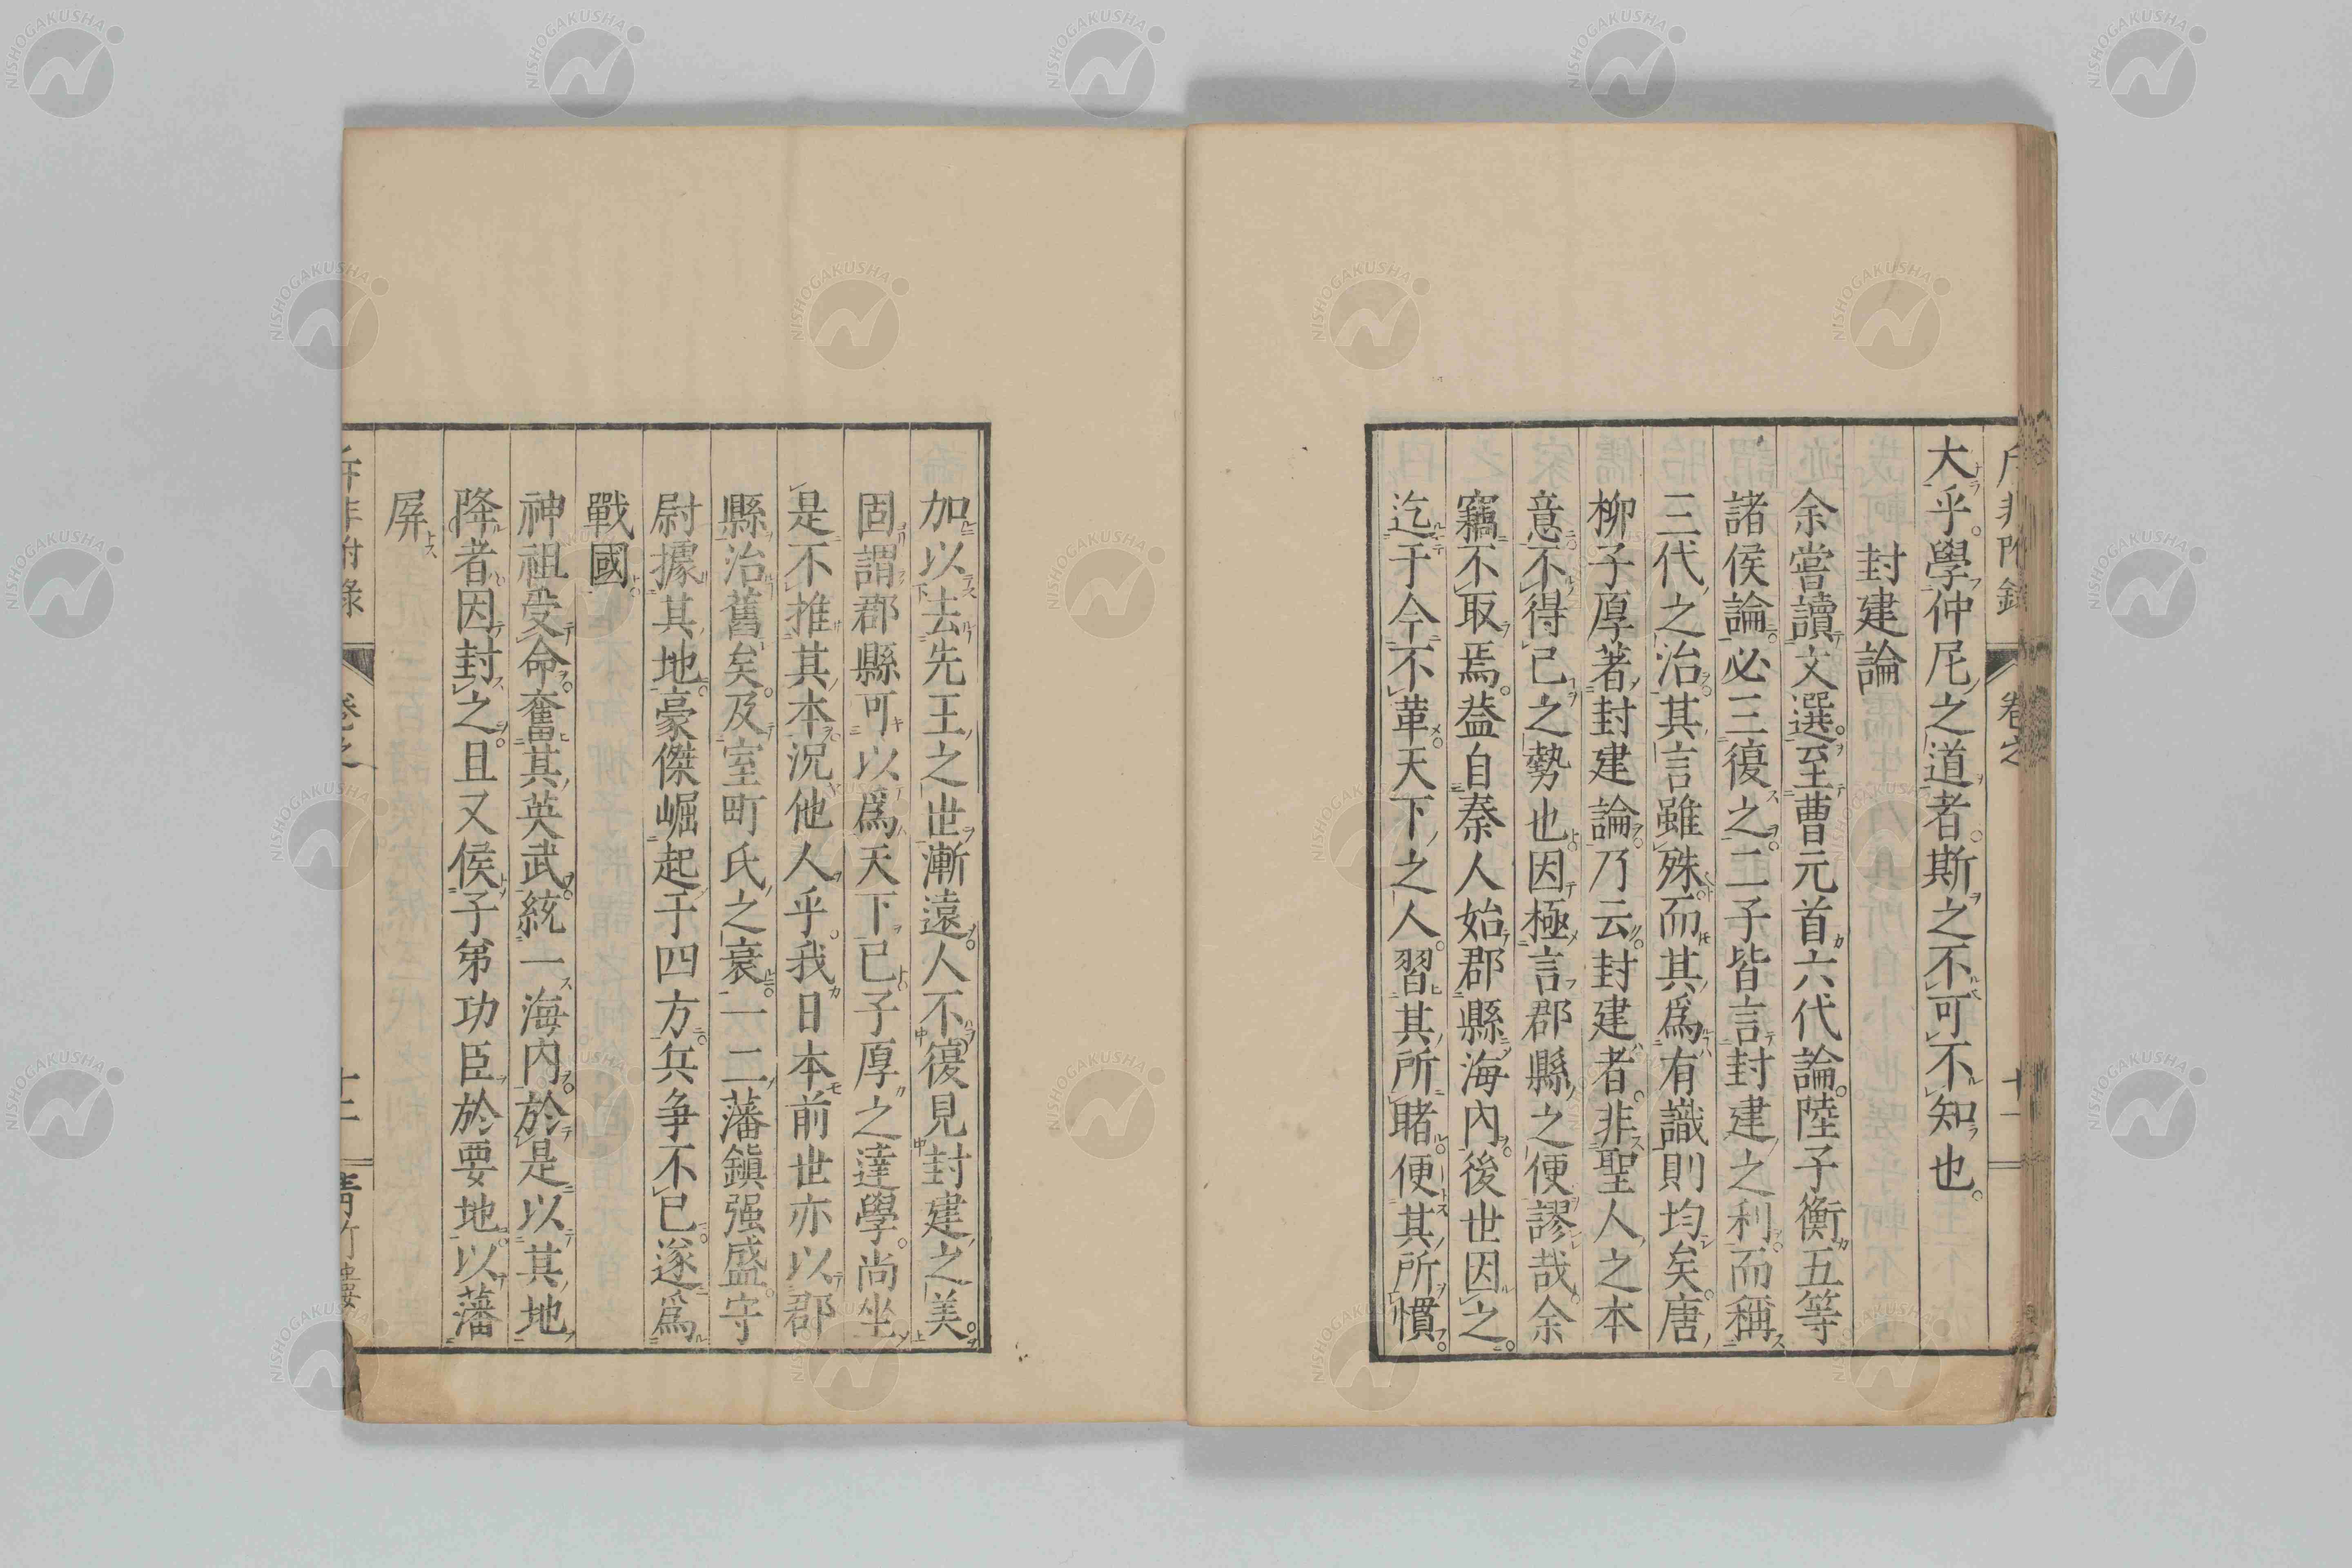 大乎學仲尼之道者斯之不可不知也
封建論
余嘗讀文選至曹元首六代論陸子衡五等
諸侯論必三復之二子皆言封建之利而稱
三代之治其言雖殊而其爲有識則均矣唐
柳子厚著封建論乃云封建者非聖人之本
意不得已之勢也因極言郡縣之便謬哉余
竊不取焉葢自秦人始郡縣海內後世因之
迄于今不革天下之人習其所睹便其所慣
加以去先王之世漸遠人不復見封建之美
固謂郡縣可以爲天下已子厚之達學尚坐
是不推其本況他人乎我日本前世亦以郡
縣治舊矣及室町氏之衰一二藩鎭强盛守
尉據其地豪傑崛起于四方兵爭不已遂爲
戰國
神祖受命奮其英武統一海內於是以其地
降者因封之且又侯子弟功臣於要地以藩
屏
NISHOGAKUSHA